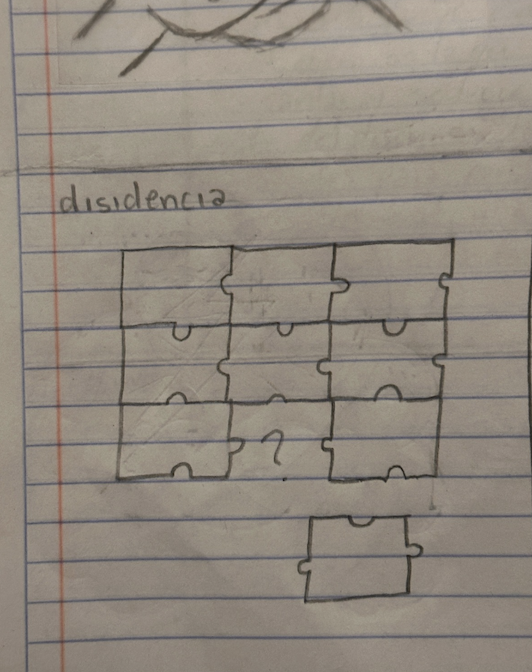 disidencia
?